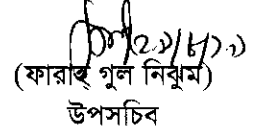 (ফারাহ গুল নিঝুম)
উপসচিব